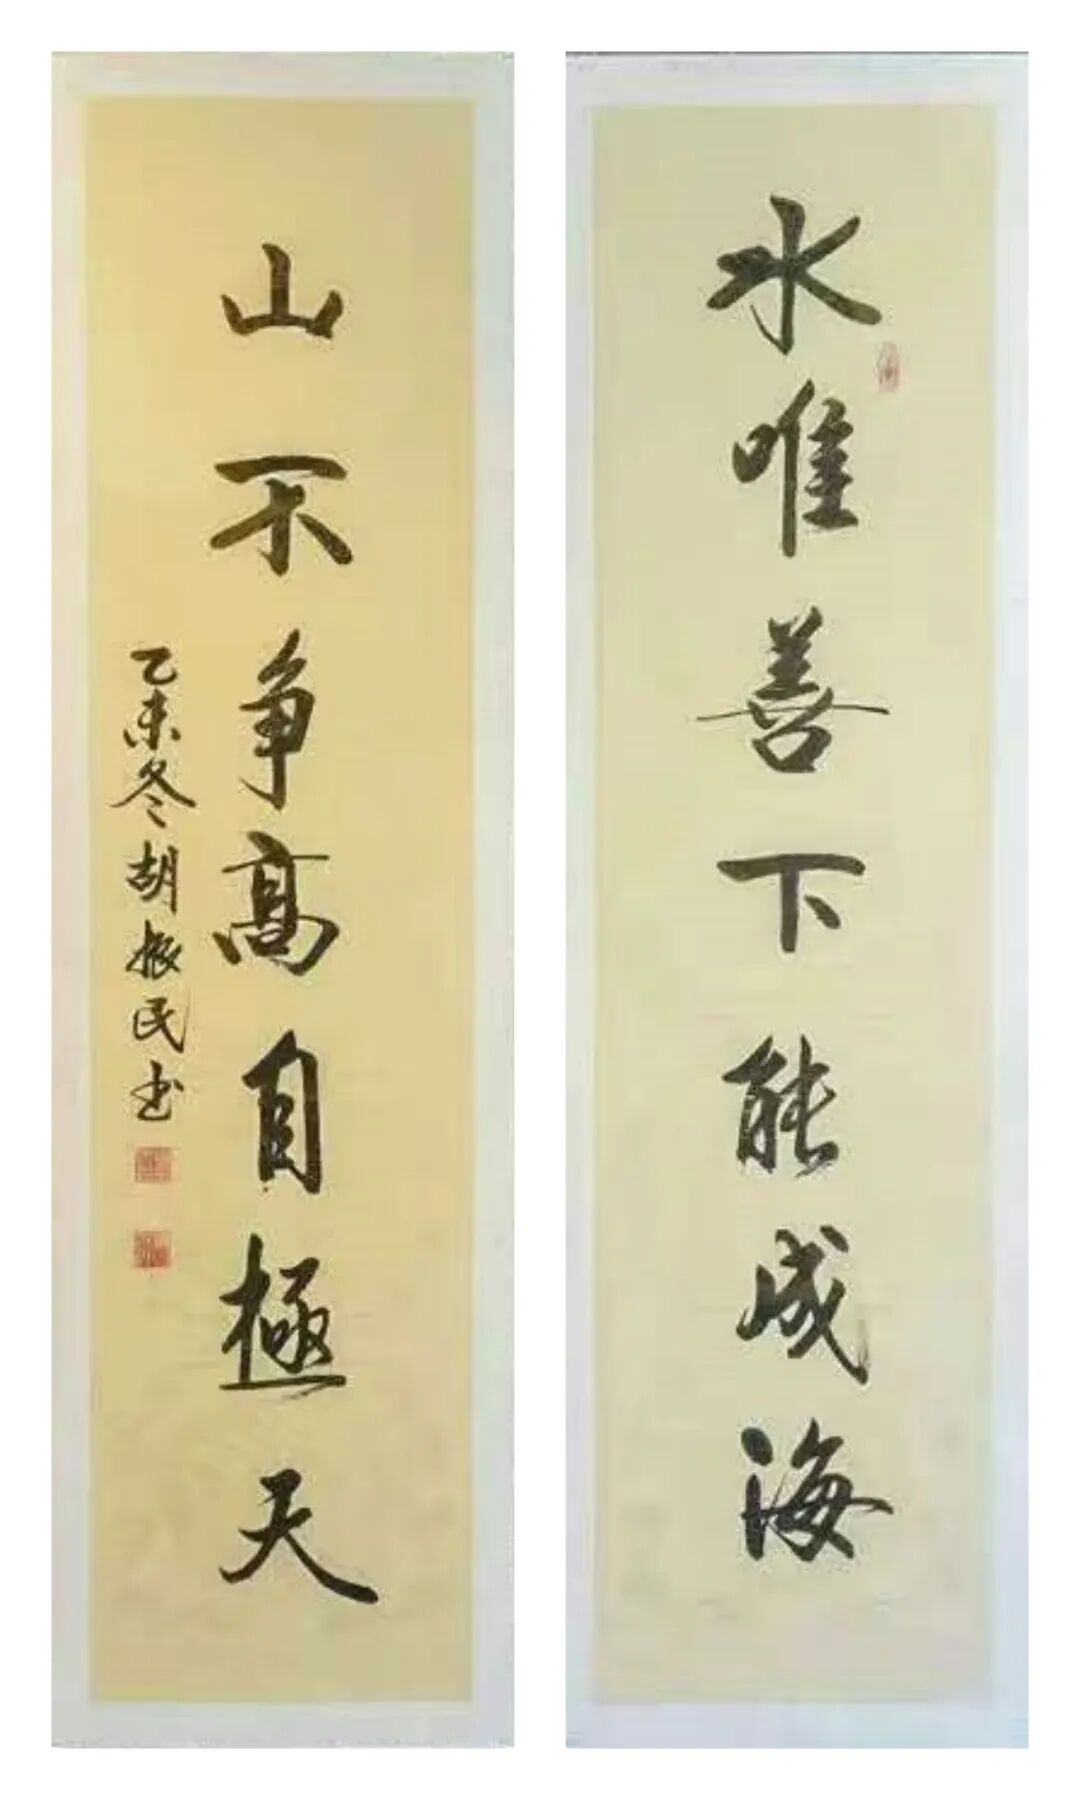 水唯善下能成海
山不争高自極天
乙未冬胡振民书